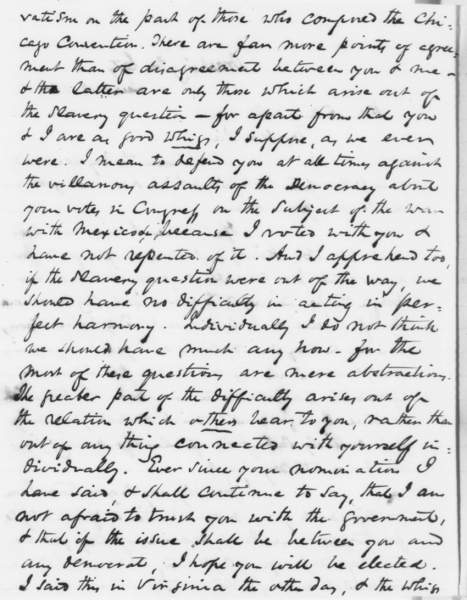 vatism on the part of those who composed the Chi-
cago Convention. There are far more points of agree-
ment than of disagreement between you & me -
& the latter are only those which arise out of
the Slavery question - for apart from that you
& I are as good Whigs, I suppose, as we ever
were. I mean to defend you at all times against
the villanous assaults of the Democracy about
your votes in Congress on the Subject of the war
with Mexico, because I voted with you &
have not repented of it. And I apprehend too,
if the Slavery question were out of the way, we
should have no difficulty in acting in per-
fect harmony. Individually I do not think
we should have much any how - for the
most of these questions are mere abstractions.
The greater part of the difficulty arises out of
the relation which others bear to you, rather than
out of any thing connected with yourself in-
dividually. Ever since your nomination I
have said, & shall continue to say, that I am
not afraid to trust you with the Government,
& that if the issue shall be between you and
any democrat, I hope you will be elected.
I said this in Virginia the other day, & the Whigs